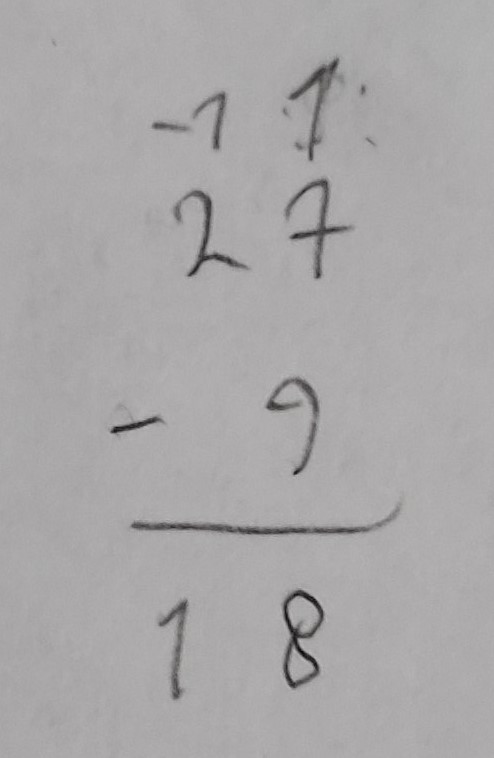 -1 1
27
- 9
18